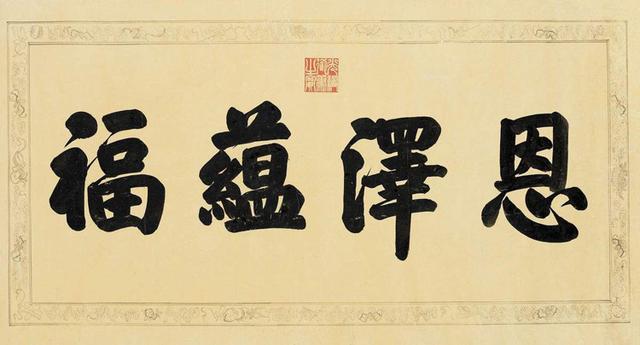 恩澤蘊福